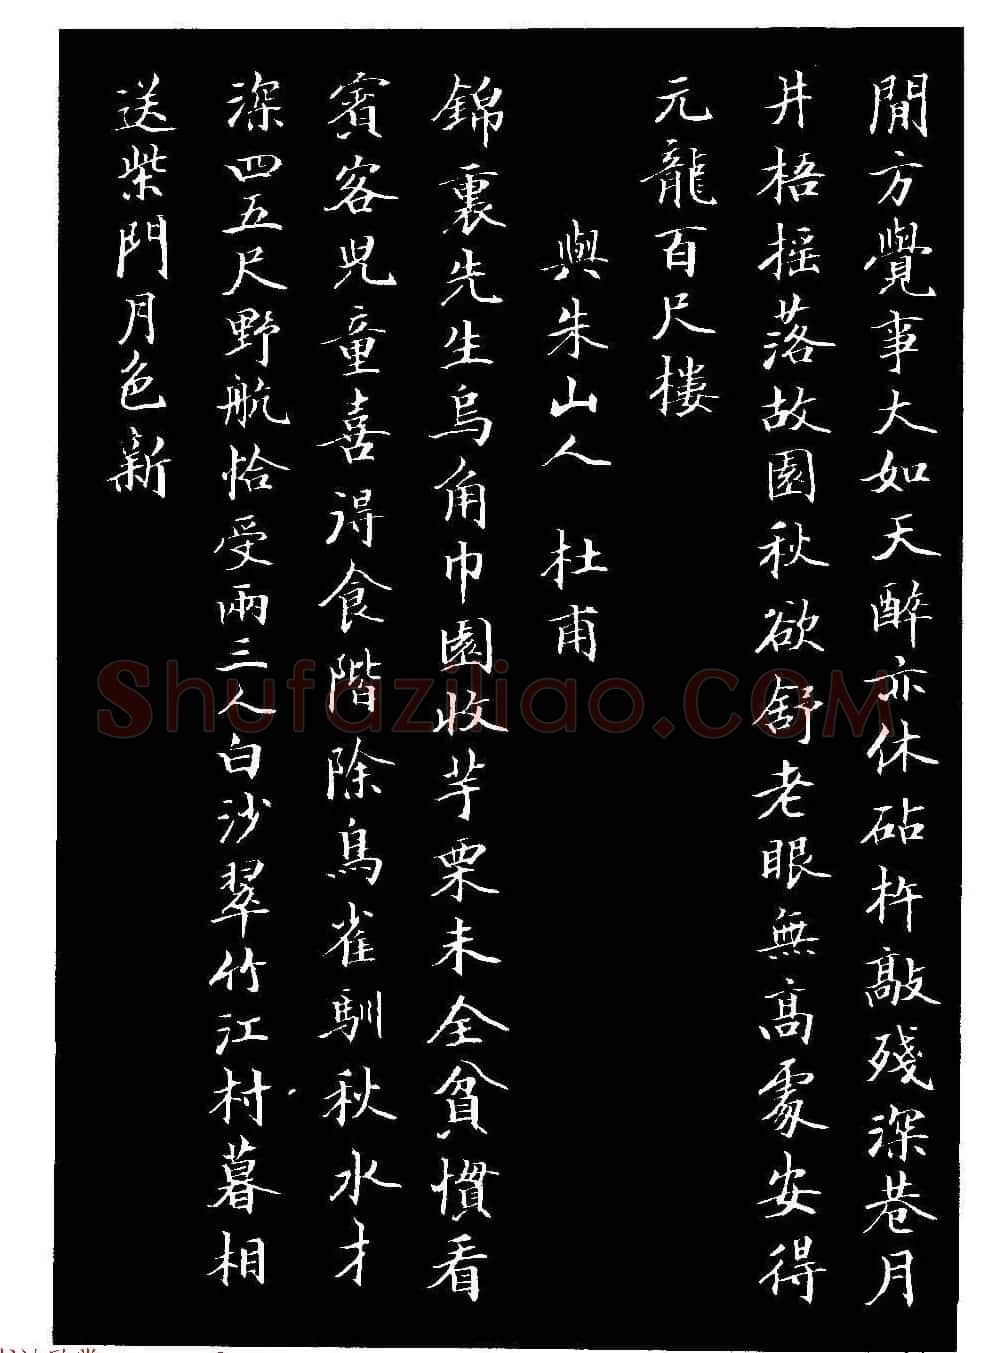 閒方覺事大如天醉亦休砧杵敲殘深巷月
井梧摇落故園秋欲舒老眼無高處安得
元龍百尺樓
與朱山人 杜甫
錦裏先生烏角巾園收芋栗未全貧慣看
賓客兒童喜得食階除鳥雀馴秋水才
深四五尺野航恰受兩三人白沙翠竹江村暮相
送柴門月色新
Shufaziliao.COM